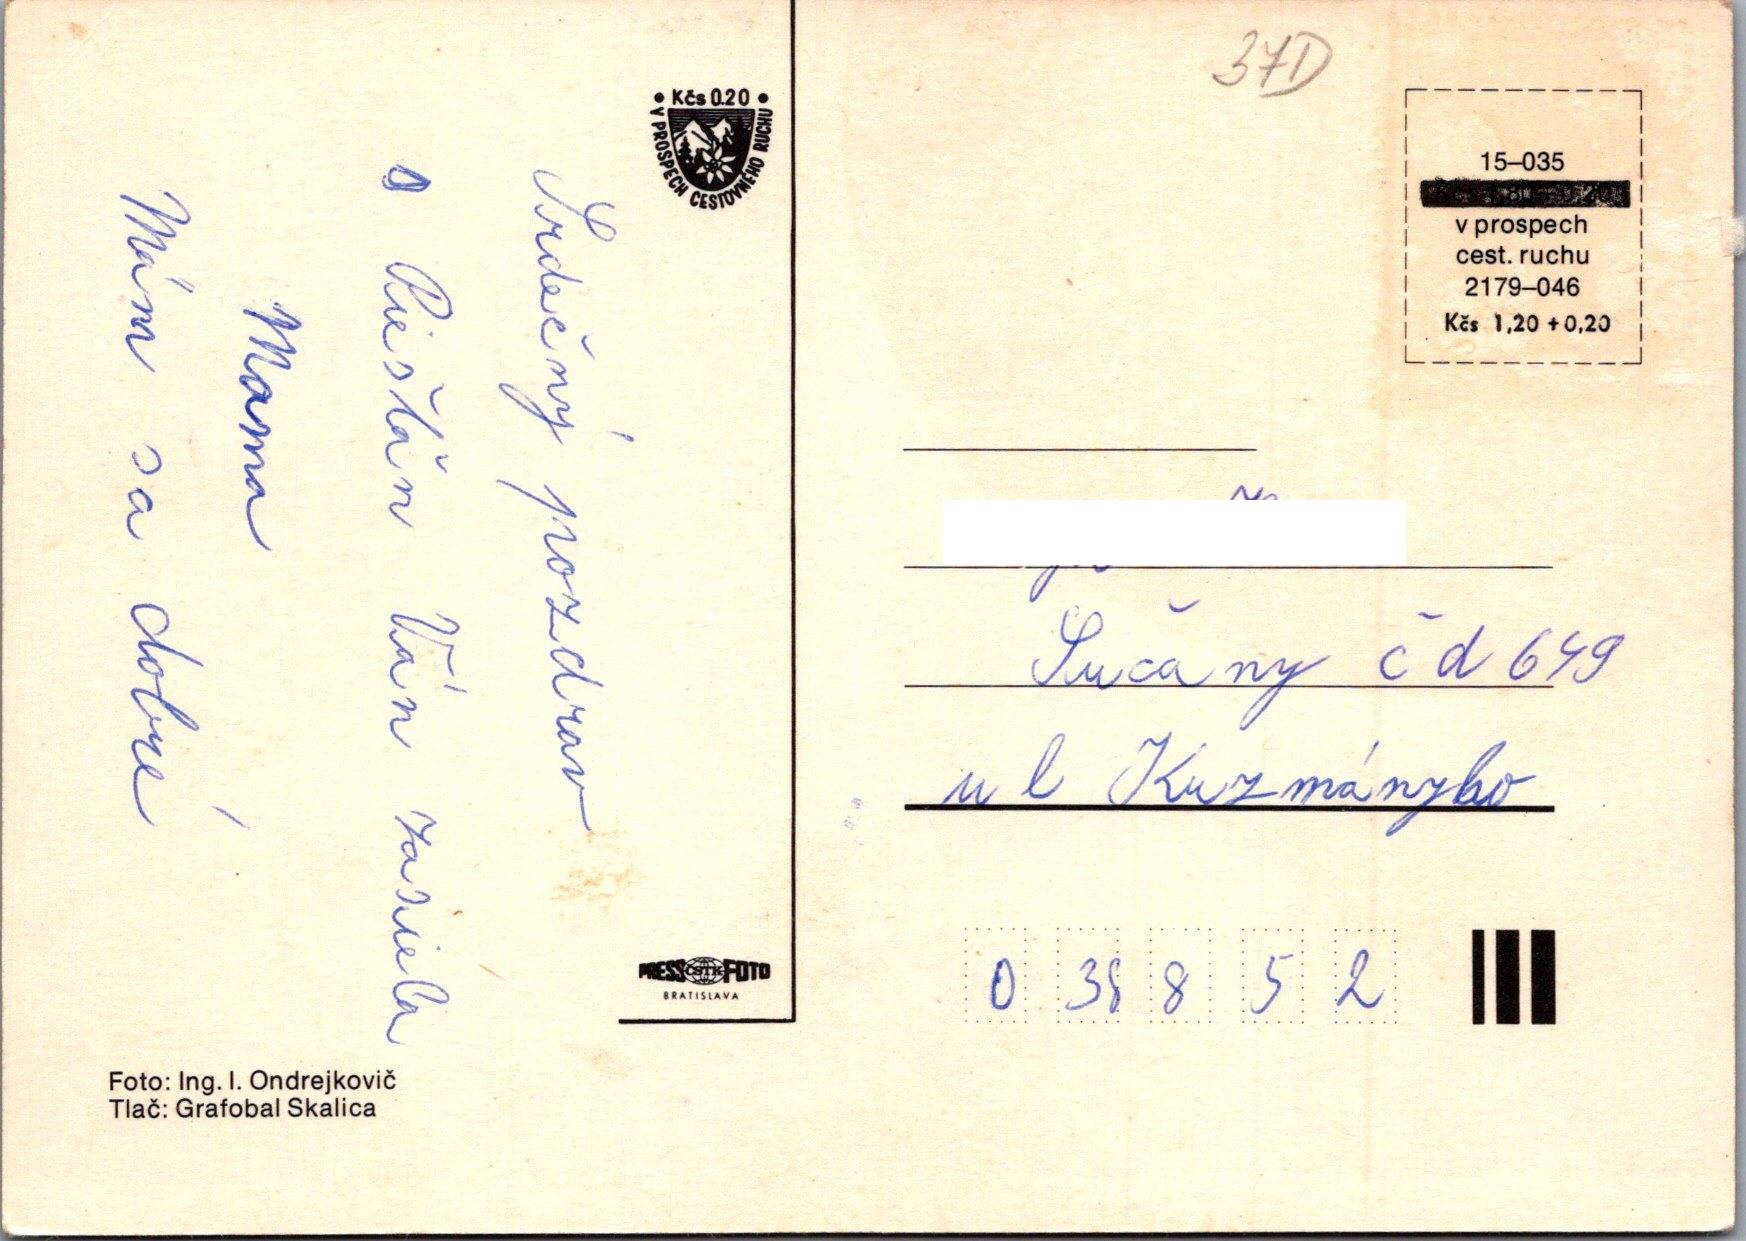 Srdečný pozdrav
s Piešťan Vám zasiela
Mama
Mám sa dobre
• Kčs 0.20 •
V PROSPECH CESTOVNÉHO RUCHU
PRESS ČSTK FOTO
BRATISLAVA
Foto: Ing. I. Ondrejkovič
Tlač: Grafobal Skalica
37D
15–035
v prospech
cest. ruchu
2179–046
Kčs 1,20 + 0,20
Sučany č d 649
ul Kuzmányho
0 38 8 5 2